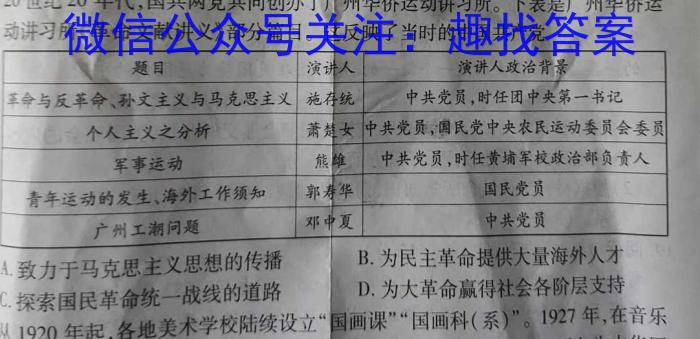 20世纪20年代，国共两党共同创办了广州华侨运动讲习所。下表是广州华侨运
动讲习所《革命文献讲义》部分篇目。这反映了当时的中国共产党
微信公众号关注：趣找答案
题目 演讲人 演讲人政治背景
革命与反革命、孙文主义与马克思主义 施存统 中共党员,时任团中央第一书记
个人主义之分析 萧楚女 中共党员,国民党中央农民运动委员会委员
军事运动 熊雄 中共党员,时任黄埔军校政治部负责人
青年运动的发生、海外工作须知 郭寿华 国民党员
广州工潮问题 邓中夏 中共党员
A. 致力于马克思主义思想的传播 B. 为民主革命提供大量海外人才
C. 探索国民革命统一战线的道路 D. 为大革命赢得社会各阶层支持
从1920年起,各地美术学校陆续设立“国画课”“国画科(系)”。1927年,在音乐